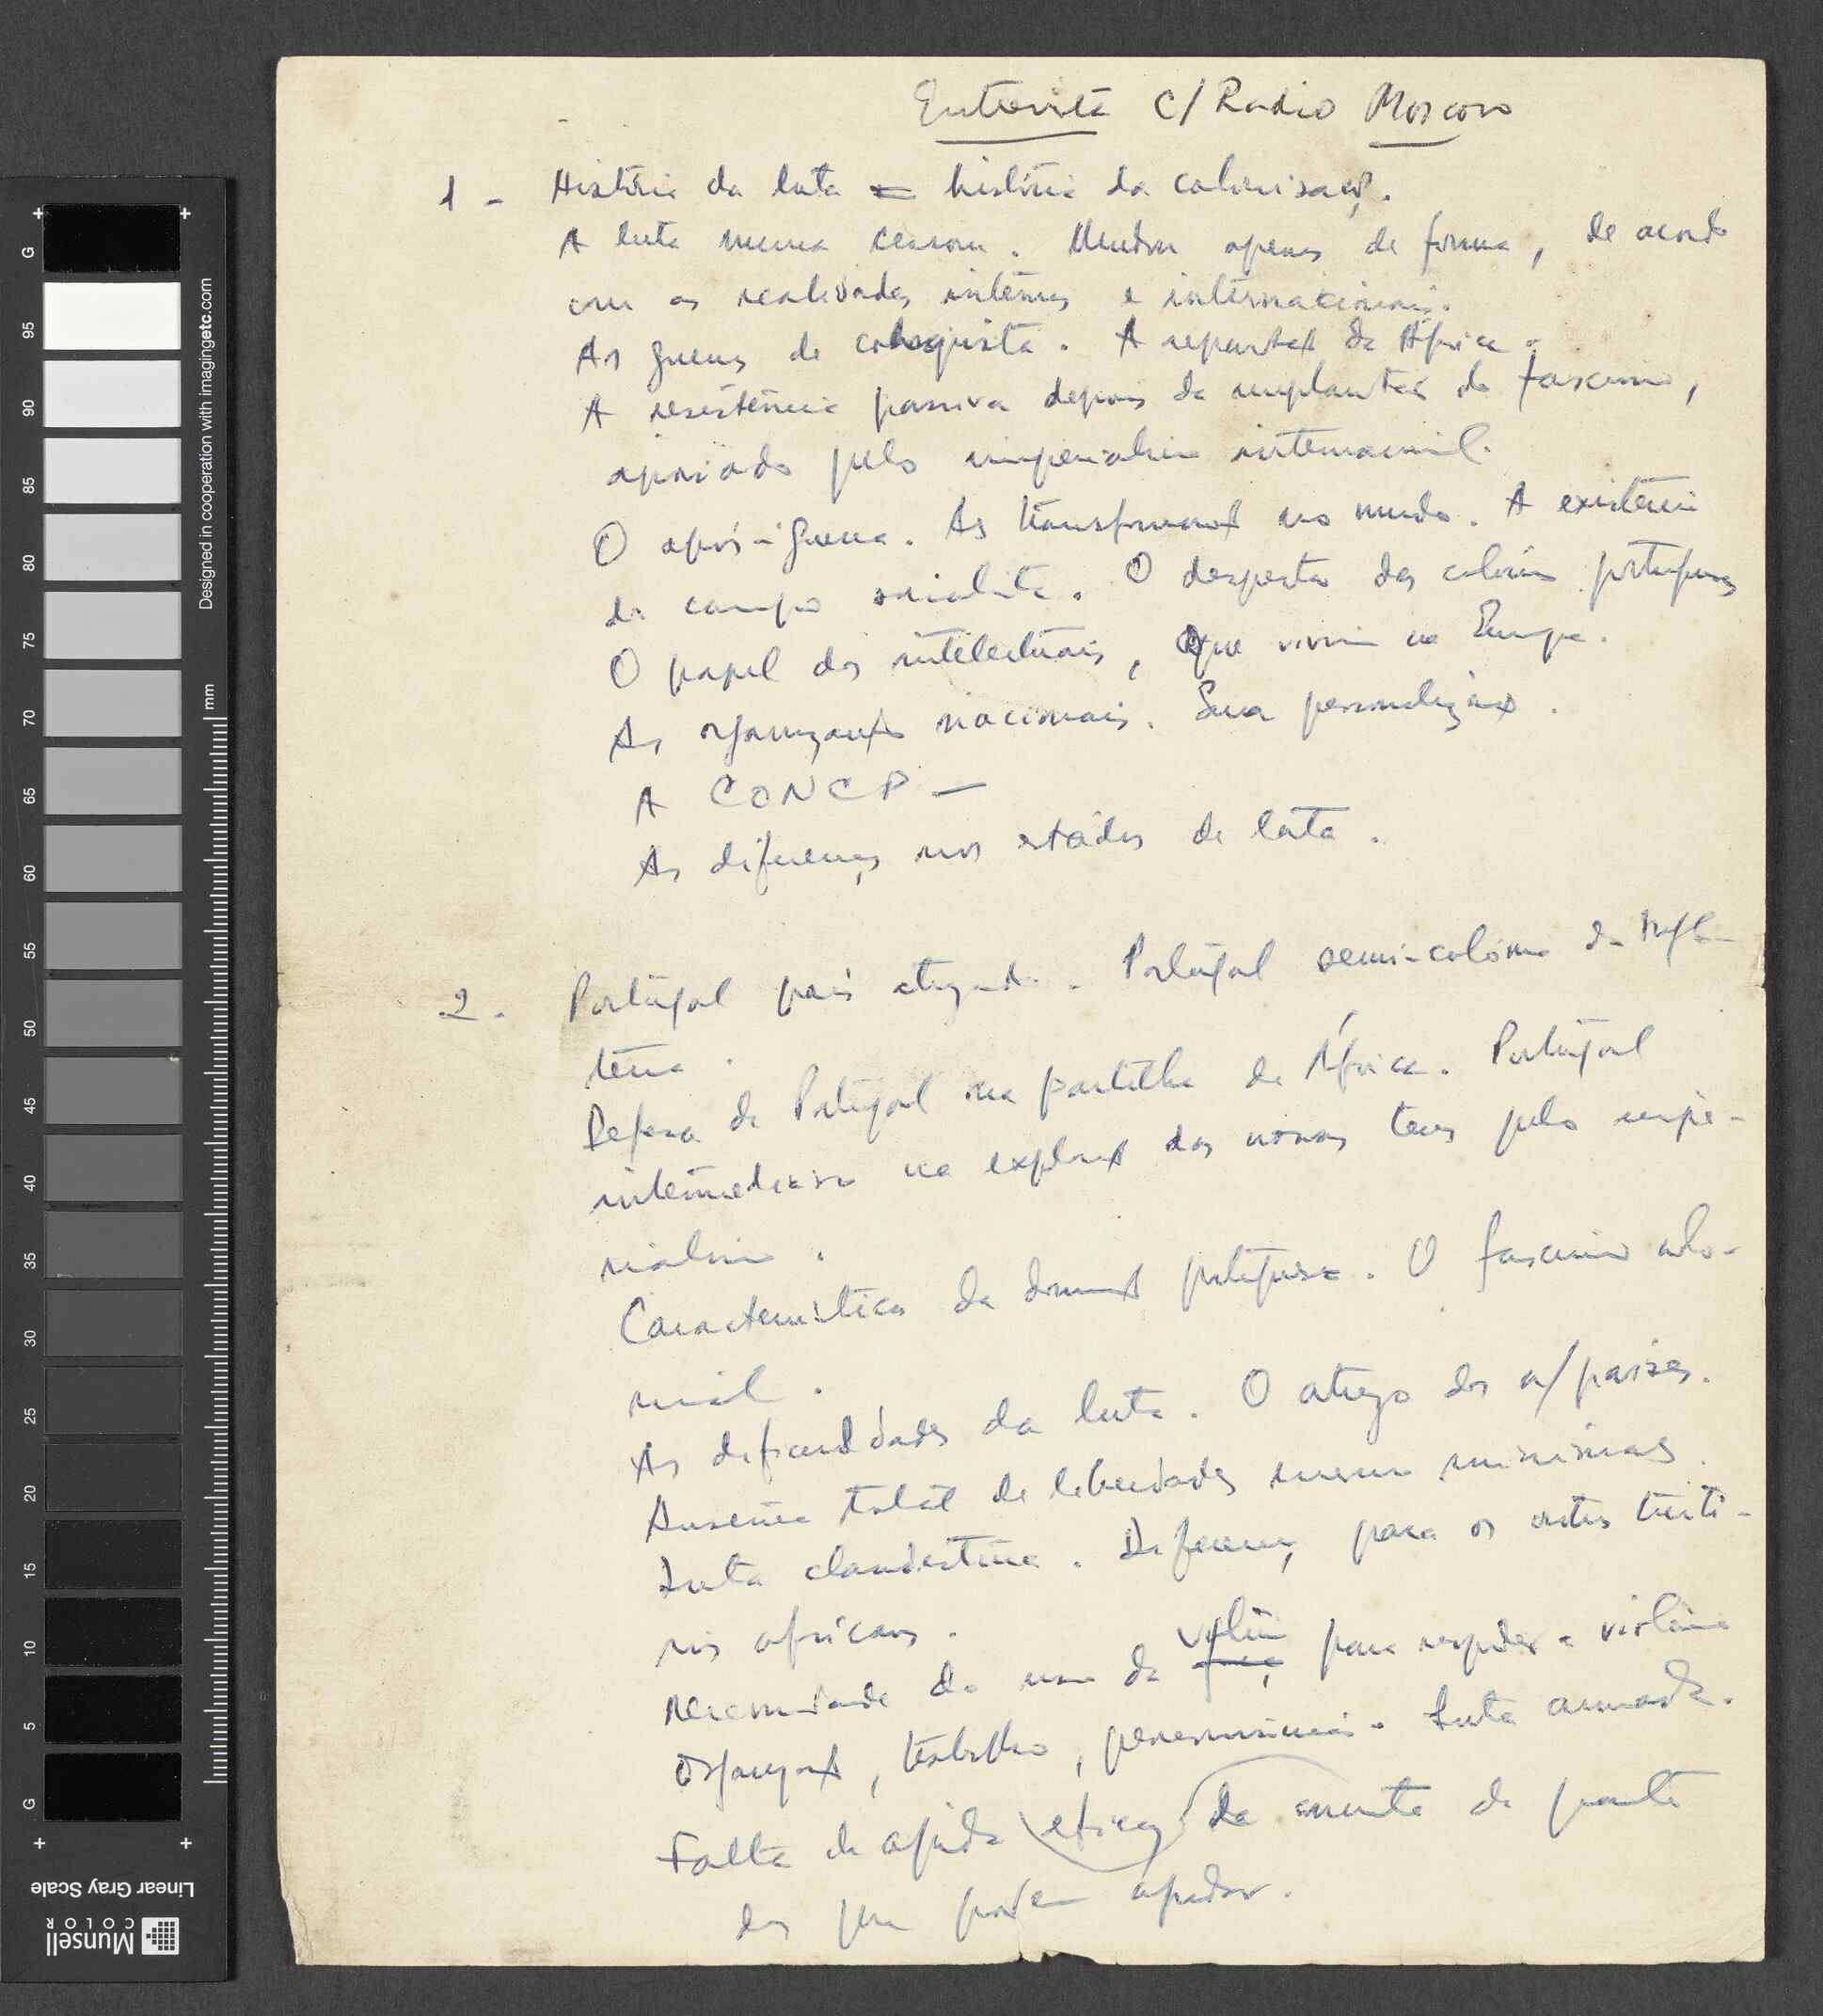 Entrevista c/ Radio Moscovo
1 - História da luta = história da colonisação.
A luta nunca cessou. Mudou apenas de forma, de acordo
com as realidades internas e internacionais.
As guerras de conquista. A repartição da África.
A resistência passiva depois da implantação do fascismo,
apoiado pelo imperialismo internacional.
O após-guerra. As transformações no mundo. A existência
do campo socialista. O despertar das colónias portuguesas
O papel dos intelectuais, que vivem na Europa.
As organizações nacionais. Sua
A CONCP -
As diferenças nos estádios de luta.
2. Portugal país atrazado. Portugal semi-colónia da Ingla-
terra.
Defesa de Portugal na partilha da África. Portugal
intermediário na exploração das nossas terras pelo impe-
rialismo.
Característica da dominação portuguesa. O fascismo colo-
nial.
As dificuldades da luta. O atrazo dos n/ países.
Ausência total de liberdades mesmo mínimas.
Luta clandestina. Diferença para os outros territó-
rios africanos.
Necessidade do uso da força violência para responder a violência
Organização, trabalho, perseverança. Luta armada.
Falta de ajuda eficaz da parte
dos que podem ajudar.
G 95 90 85 80 75 70 65 60 55 50 45 40 35 30 25 20 15 10 5 G
mm
Designed in cooperation with imagingetc.com
Linear Gray Scale
Munsell
COLOR